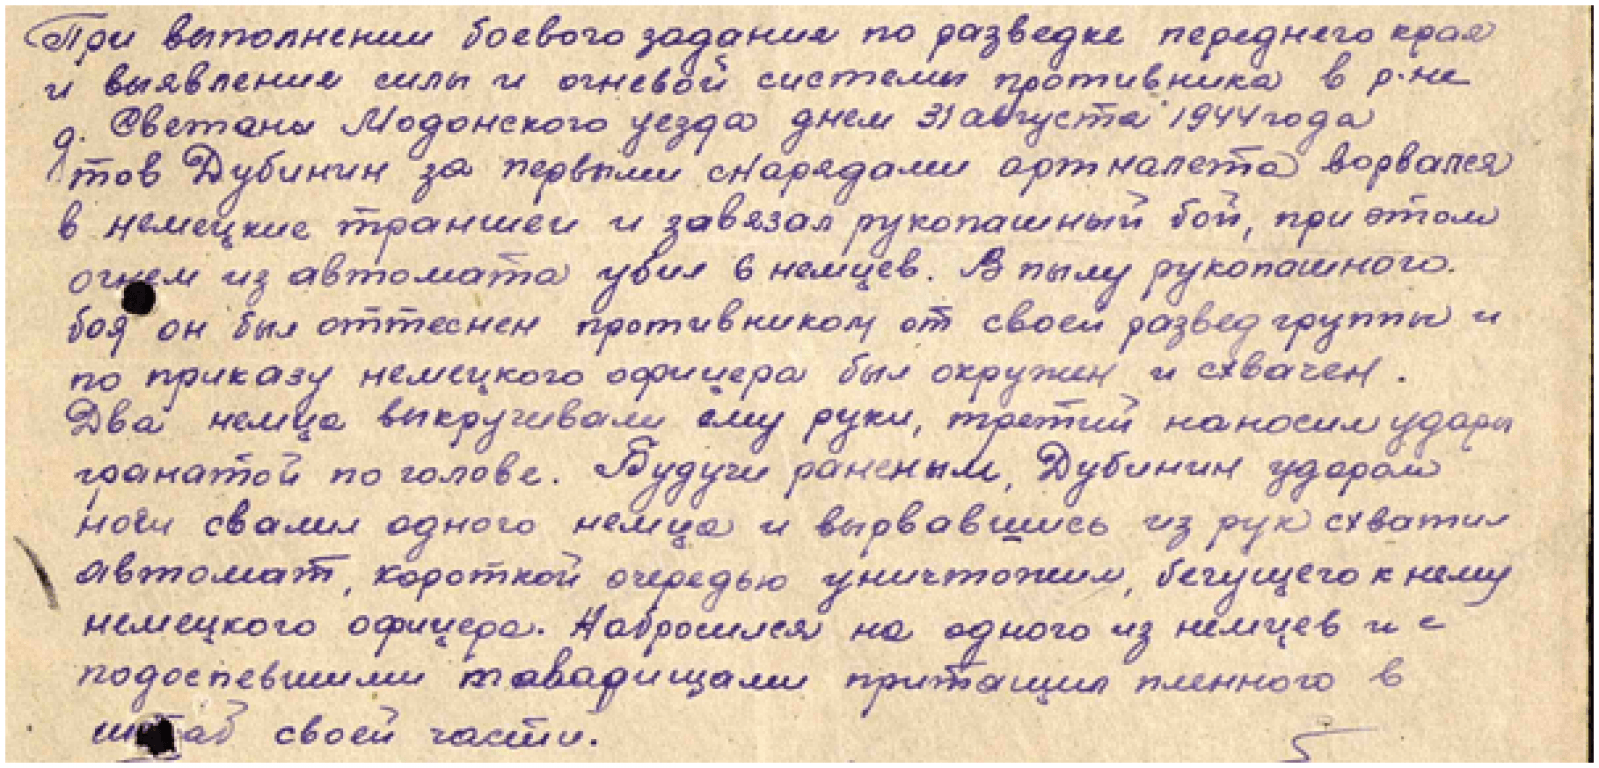 При выполнении боевого задания по разведке переднего края
и выявление силы и огневой системы противника в р-не
д. Светаны Модонского уезда днем 31 августа 1944 года
тов Дубинин за первыми снарядами артналета ворвался
в немецкие траншеи и завязал рукопашный бой, при этом
огнем из автомата убил 6 немцев. В пылу рукопашного.
боя он был оттеснен противником от своей развед группы и
по приказу немецкого офицера был окружен и схвачен.
Два немца выкручивали ему руки, третий наносил удары
гранатой по голове. Будучи раненым, Дубинин ударом
ноги свалил одного немца и вырвавшись из рук схватил
автомат, короткой очередью уничтожил, бегущего к нему
немецкого офицера. Набросился на одного из немцев и с
подоспевшими товарищами притащил пленного в
штаб своей части.